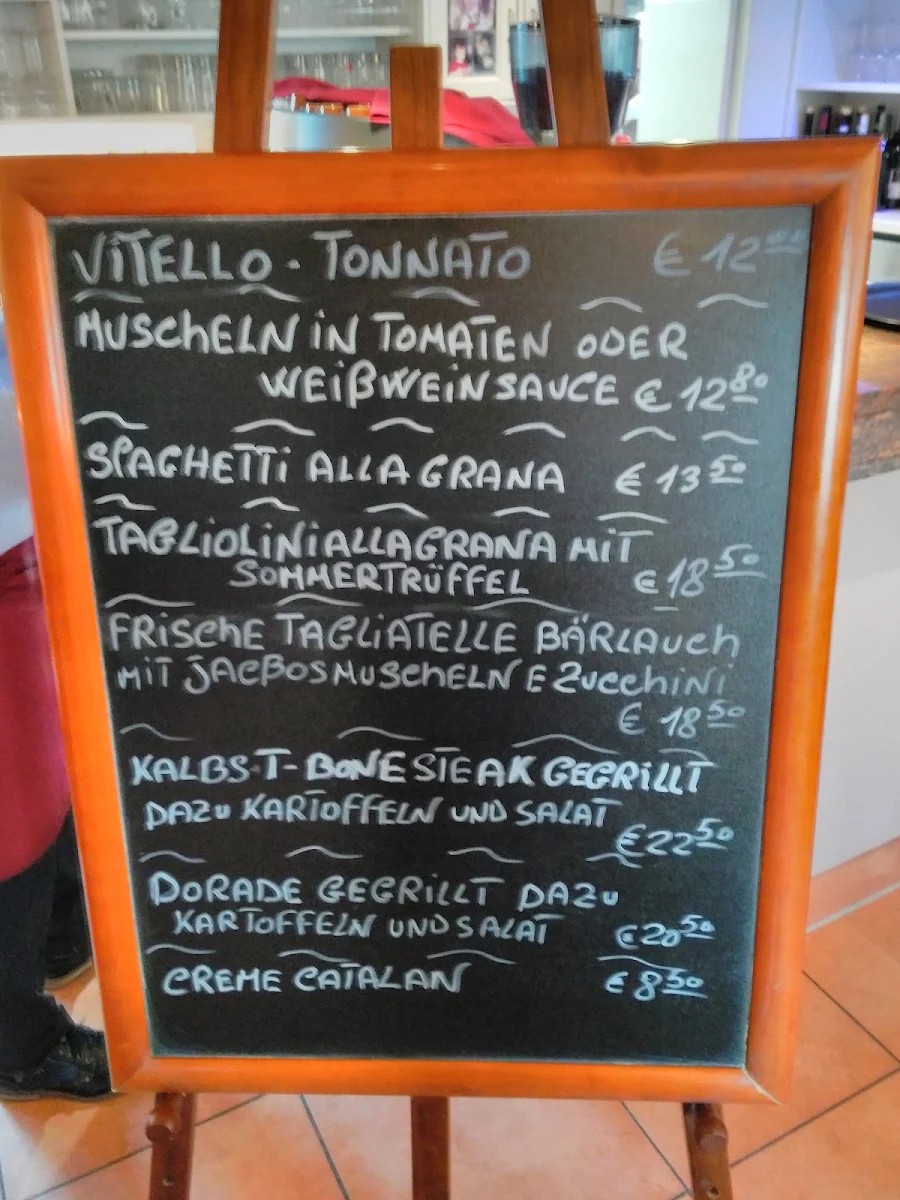 ViTELLO - TONNATO € 12
MUSCHELN iN TOMATEN ODER
WEIßWEINSAUCE € 12 80
SPAGHETTi ALLA GRANA € 13 50
TAGLiOLiNi ALLA GRANA MiT
SOMMERTRÜFFEL € 18 50
FRiSCHE TAGLiATELLE BÄRLAUCH
MiT JACBOSMUSCHELN E ZUCCHiNi
€ 18 50
KALBS-T-BONE STEAK GEGRiLLT
DAZU KARTOFFELN UND SALAT
€ 22 50
DORADE GEGRiLLT DAZU
KARTOFFELN UND SALAT € 20 50
CREME CATALAN € 8 50